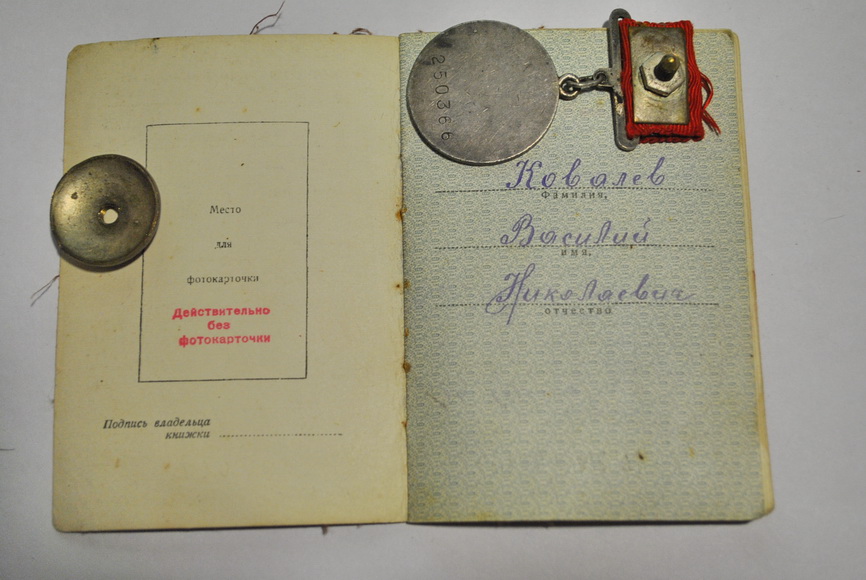 Место
для
фотокарточки
Действительно
без
фотокарточки
Подпись владельца
книжки
250366
Ковалев
Фамилия,
Василий
имя,
Николаевич
отчество